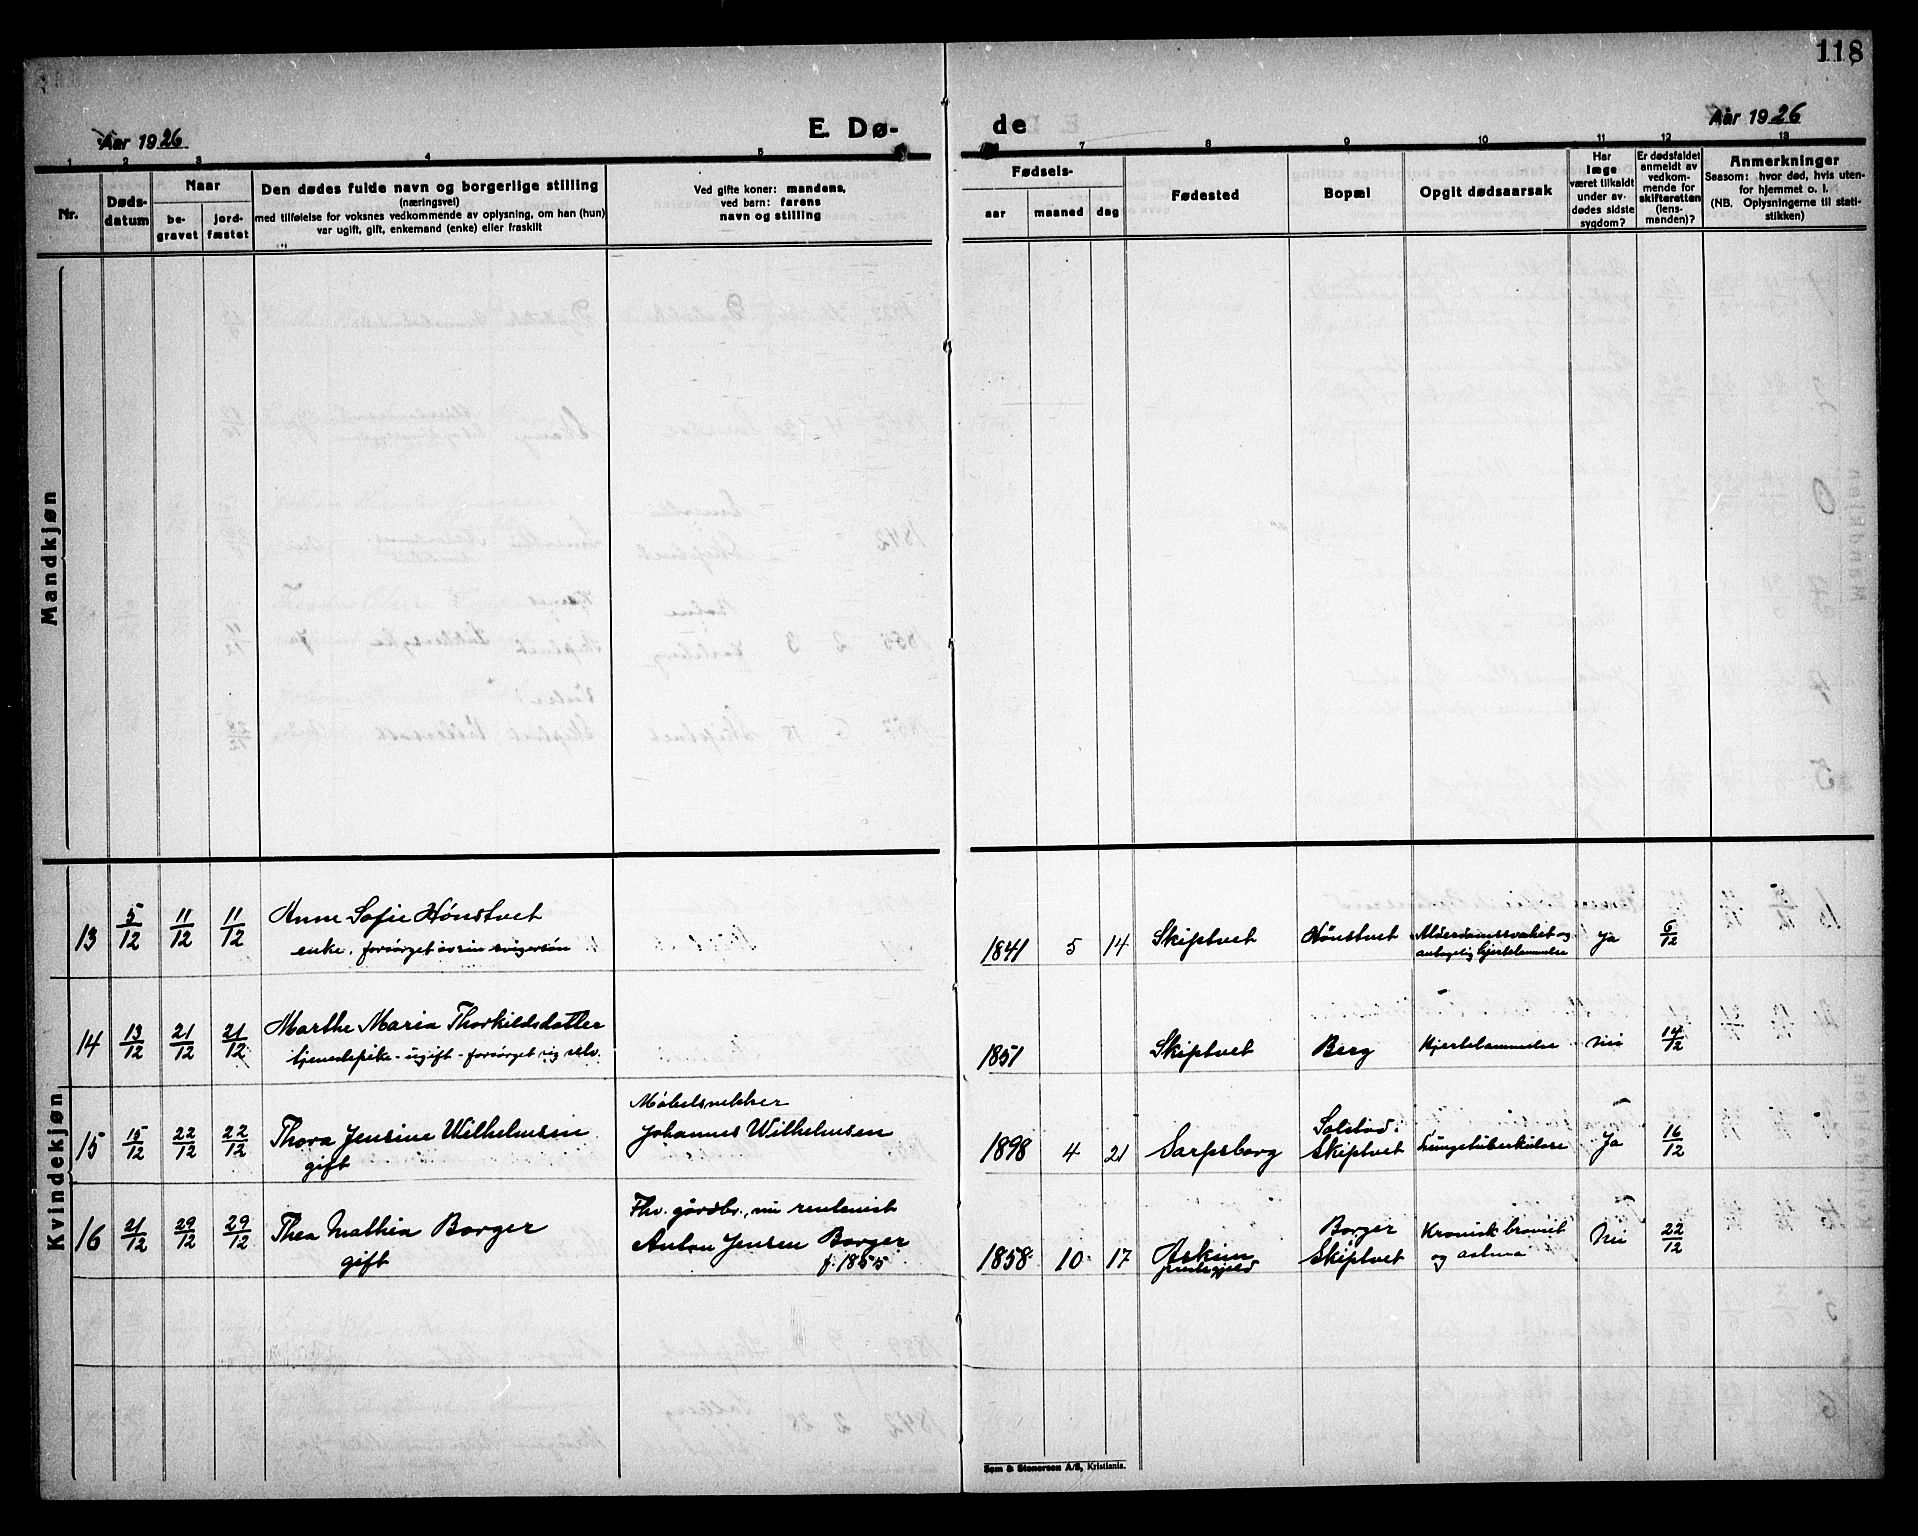 118
Aar 1926
E. Dø-
de
Aar 1926
1 2 3 4 5 7 8 9 10 11 12 13
Nr.
Døds-
datum
Naar
be-
gravet
jord-
fæstet
Den dødes fulde navn og borgerlige stilling
(næringsvei)
med tilføielse for voksnes vedkommende av oplysning, om han (hun)
var ugift, gift, enkemand (enke) eller fraskilt
Ved gifte koner: mandens,
ved barn: farens
navn og stilling
Fødsels-
aar maaned dag
Fødested
Bopæl
Opgit dødsaarsak
Har
læge
været tilkaldt
under av-
dødes sidste
sygdom?
Er dødsfaldet
anmeldt av
vedkom-
mende for
skifteretten
(lens-
manden)?
Anmerkninger
Saasom: hvor død, hvis uten-
for hjemmet o. l.
(NB. Oplysningerne til stati-
stikken)
Mandkjøn
Kvindekjøn
13 5/12 11/12 11/12 Anne Sofie Hønstvet
enke, forsørget av sin svigersøn
1841 5 14 Skiptvet Hønstvet Alderdomssvakhet og
Hjertelammelse Ja 6/12
14 13/12 21/12 21/12 Marthe Maria Thorkildsdatter
tjenestepike - ugift - forsørget sig selv.
1851 Skiptvet Berg Hjertelammelse Nei 14/12
15 15/12 22/12 22/12 Thora Jensine Wilhelmsen
gift
Møbelsnekker
Johannes Wilhelmsen
1898 4 21 Sarpsborg Solstad
Skiptvet Lungetuberkulose Ja 16/12
16 21/12 29/12 29/12 Thea Mathea Borger
gift
Fhv. gårdbr., nu rentenist
Anton Jensen Borger
f. 1855
1858 10 17 Askim
prestegjeld Borger
Skiptvet Kronisk bronkit
og astma Nei 22/12
Sem & Stenersen A/S, Kristiania.